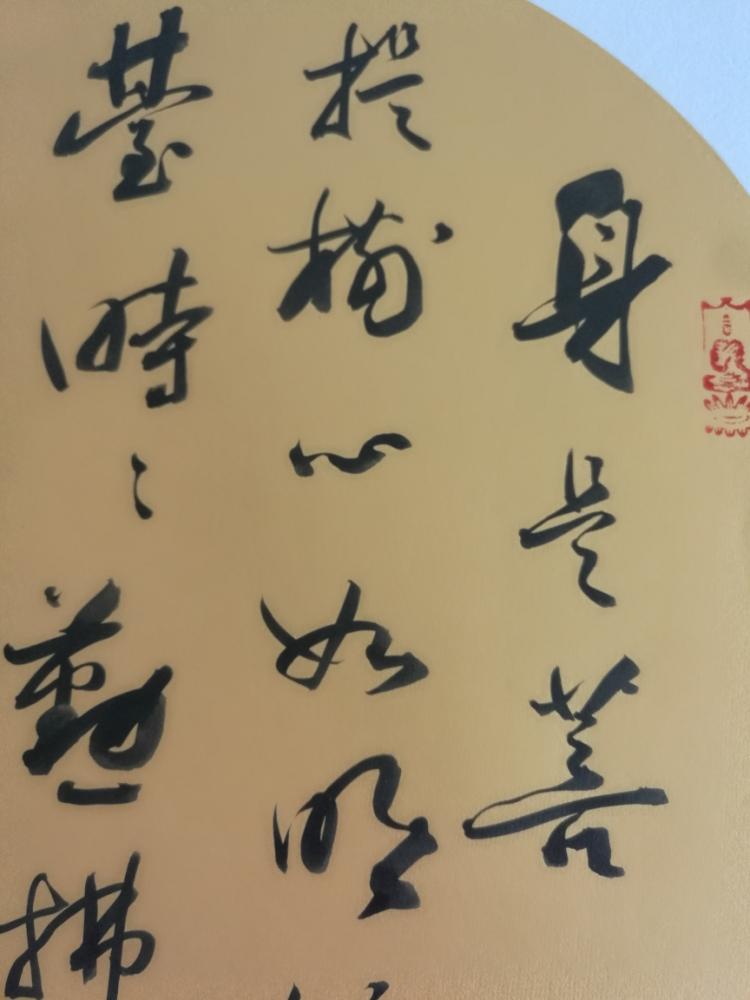 身是菩
提樹心如明
臺時〻勤拂